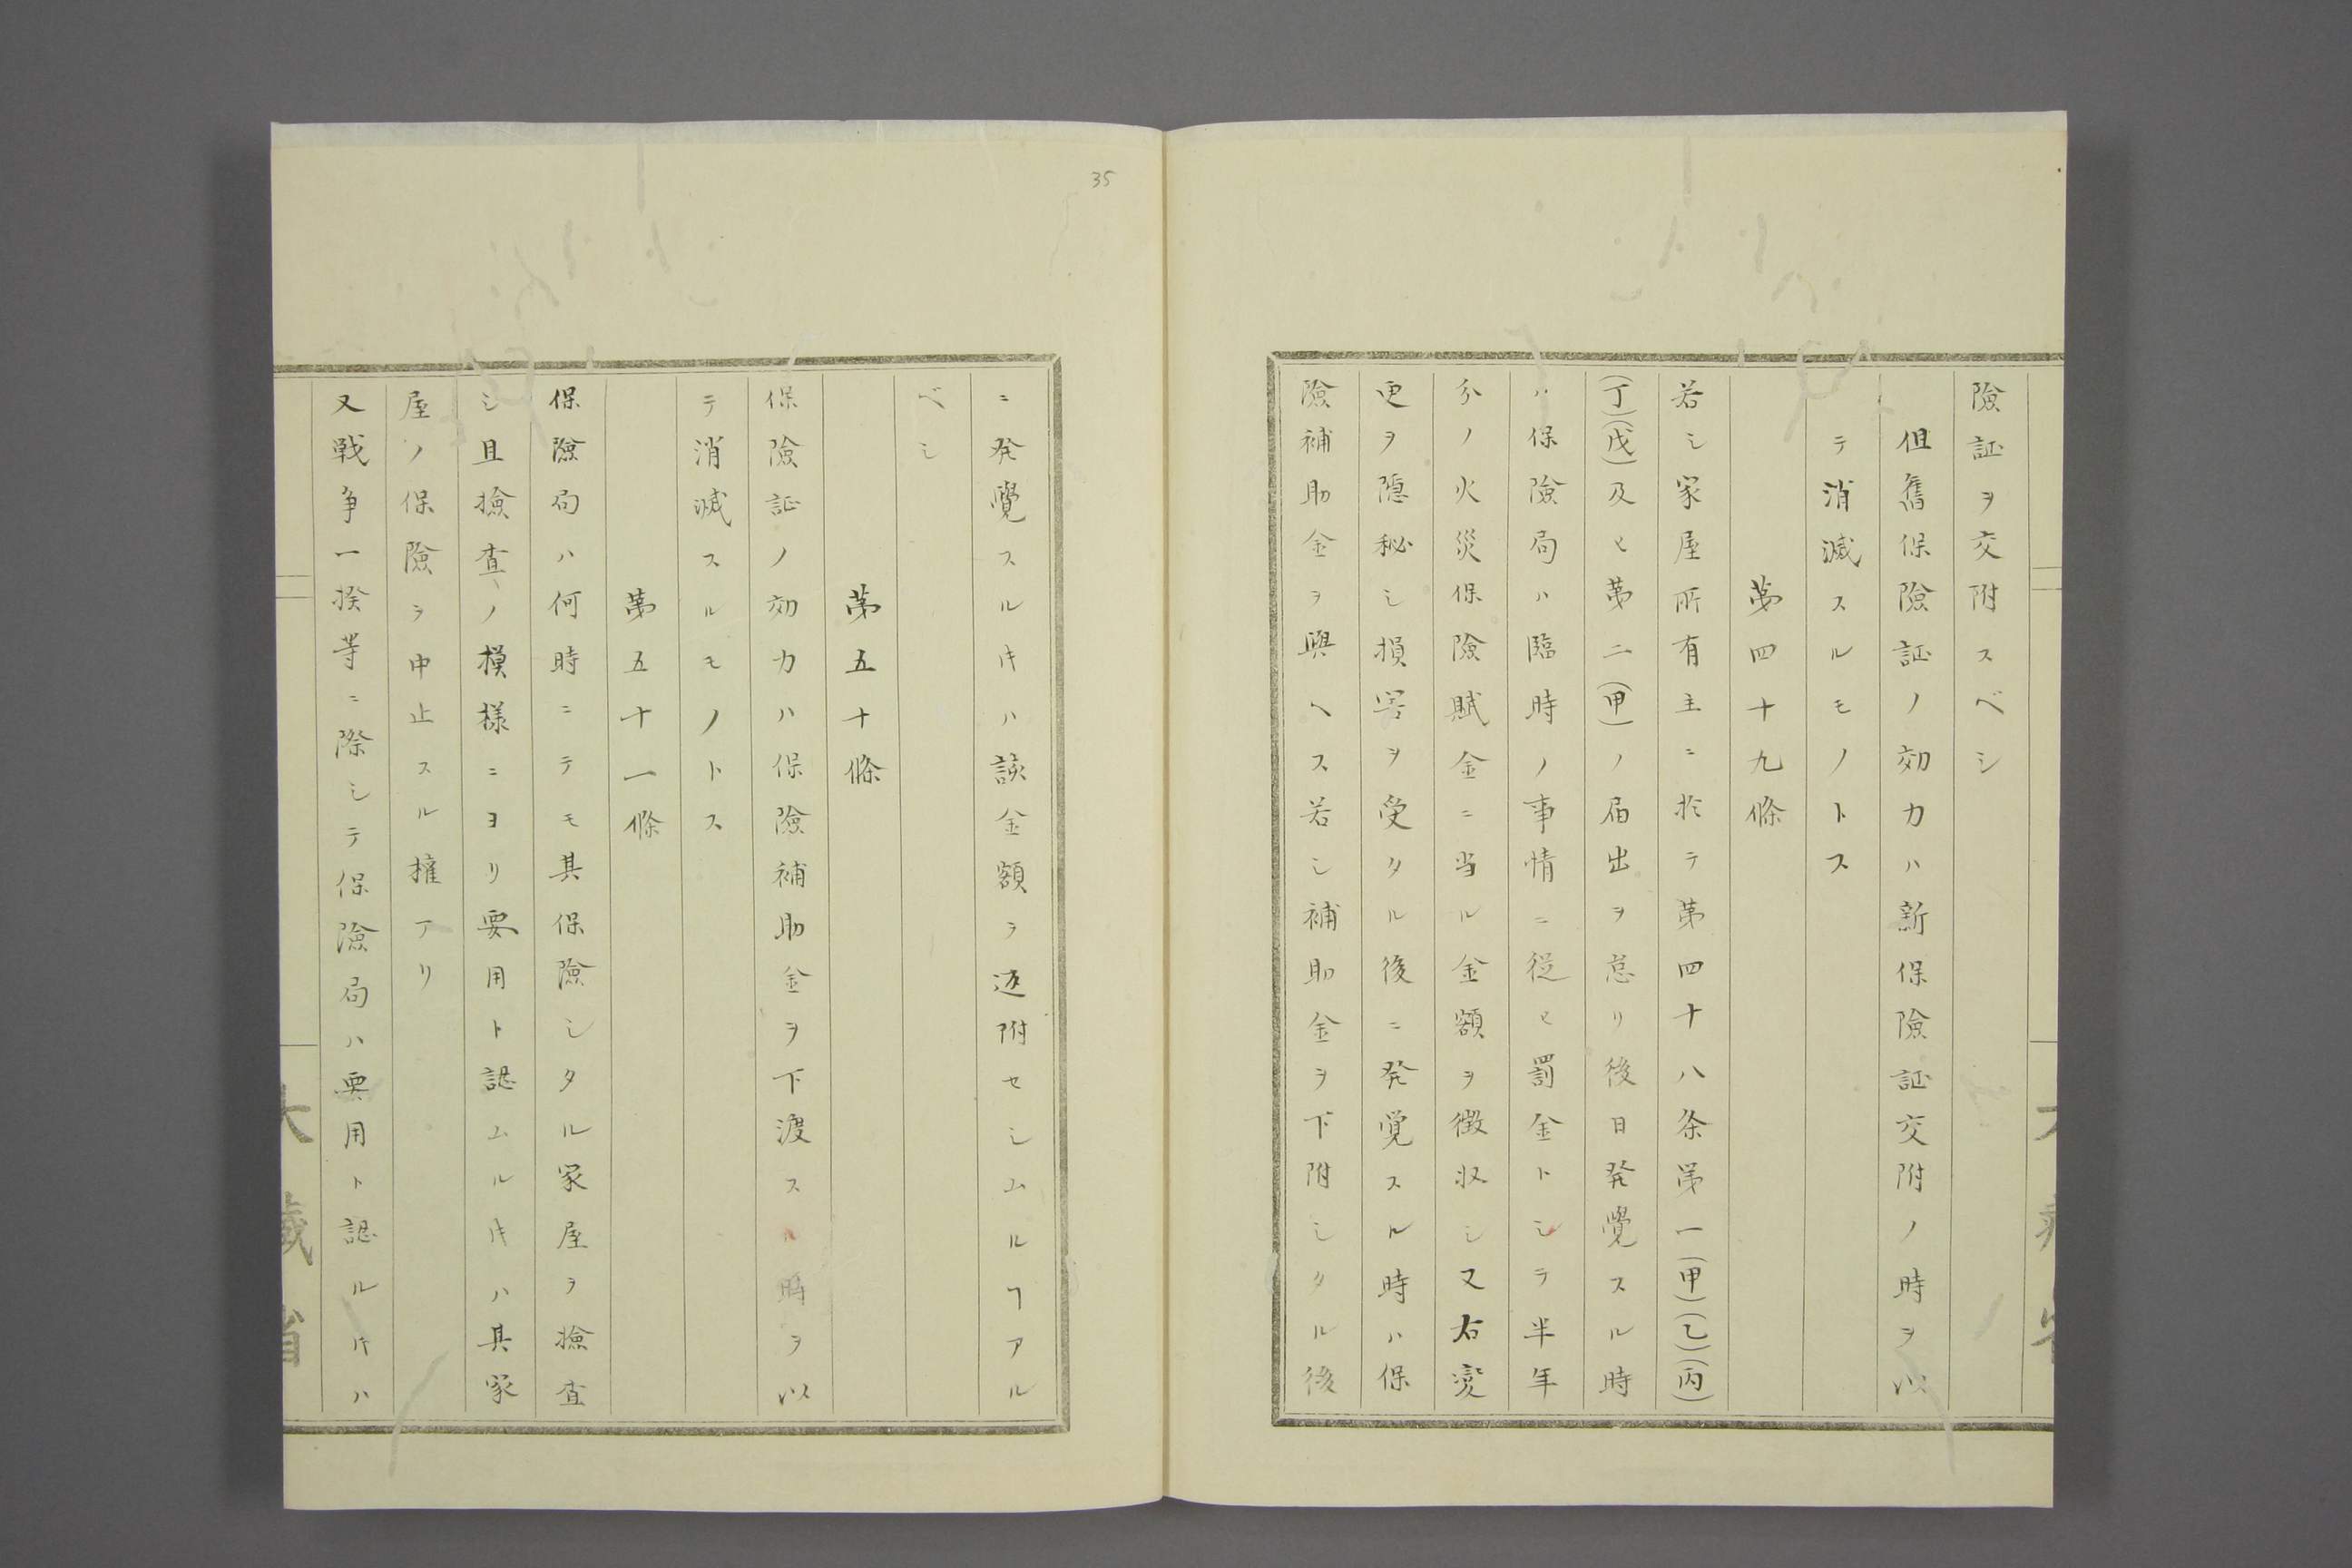 險証ヲ交附スベシ
但舊保險証ノ効力ハ新保險証交附ノ時ヲ以
テ消滅スルモノトス
第四十九條
若シ家屋所有主ニ於テ第四十八条第一(甲)(乙)(丙)
(丁)(戊)及ヒ第二(甲)ノ届出ヲ怠リ後日発覺スル時
ハ保險局ハ臨時ノ事情ニ従ヒ罰金トシテ半年
分ノ火災保險賦金ニ当ル金額ヲ徴収シ又右変
更ヲ隠秘シ損害ヲ受タル後ニ発覚スル時ハ保
險補助金ヲ與ヘス若シ補助金ヲ下附シタル後
35
ニ発覺スルキハ該金額ヲ返附セシムルヿアル
ベシ
第五十條
保險証ノ効力ハ保險補助金ヲ下渡スル時ヲ以
テ消滅スルモノトス
第五十一條
保險局ハ何時ニテモ其保險シタル家屋ヲ撿査
シ且撿査ノ模様ニヨリ要用ト認ムルキハ其家
屋ノ保險ヲ中止スル権アリ
又戦争一揆等ニ際シテ保險局ハ要用ト認ルキハ
大藏省